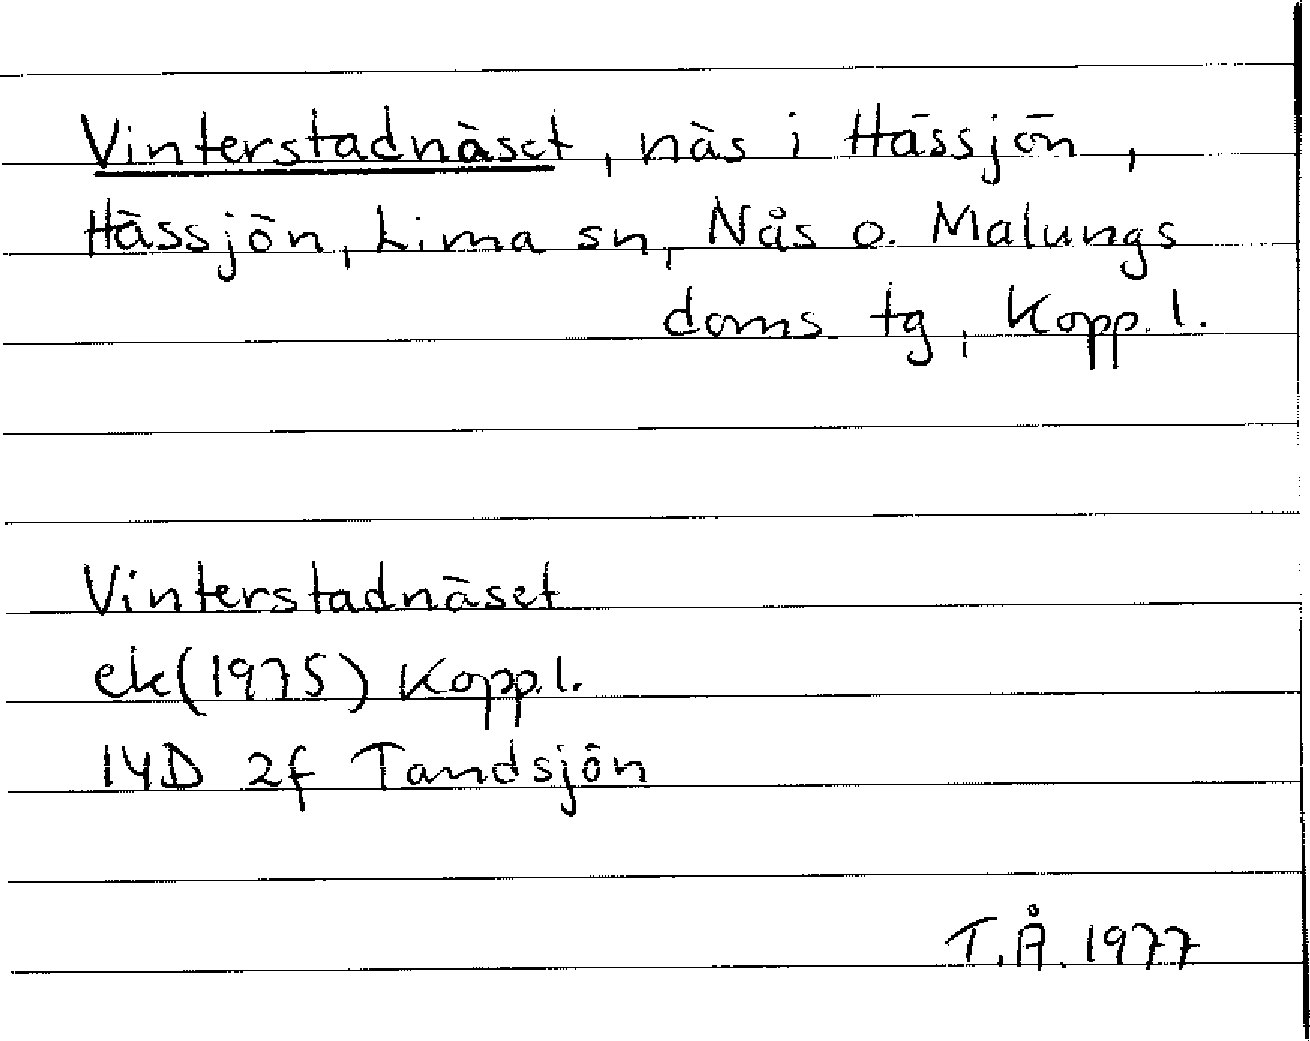 Vinterstadnäset, näs i Hässjön,
Hässjön, Lima sn, Nås o. Malungs
doms tg, Kopp. l.
Vinterstadnäset
ek(1975) Kopp.l.
14D 2f Tandsjön
T.Å. 1977